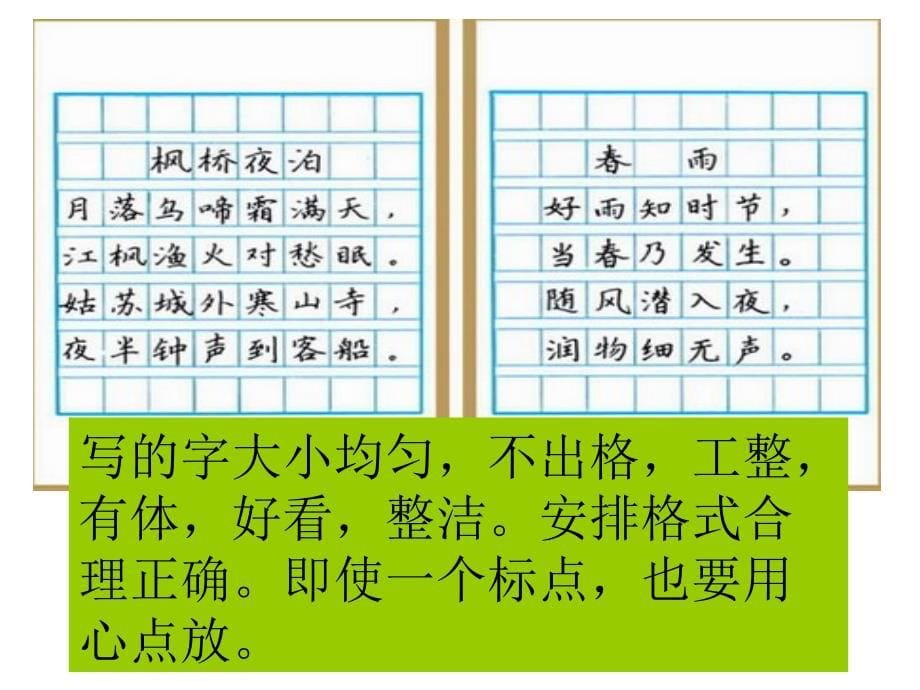 枫桥夜泊
月落乌啼霜满天，
江枫渔火对愁眠。
姑苏城外寒山寺，
夜半钟声到客船。
春雨
好雨知时节，
当春乃发生。
随风潜入夜，
润物细无声。
写的字大小均匀，不出格，工整，
有体，好看，整洁。安排格式合
理正确。即使一个标点，也要用
心点放。